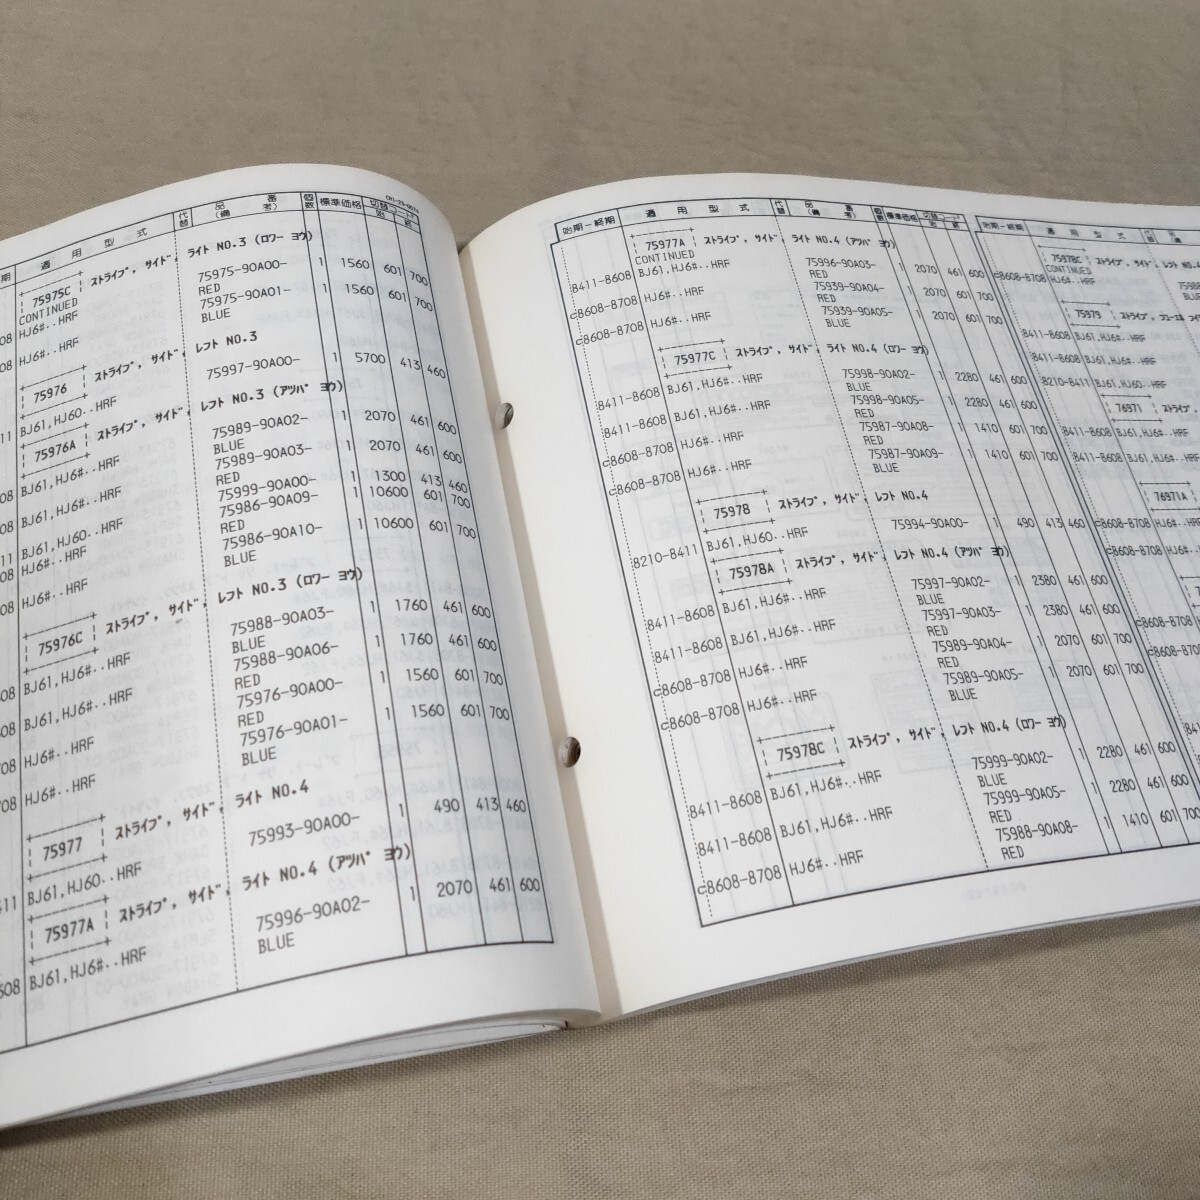 期 適用型式 代替 品番 (備考) 個数 標準価格 切替コード 始 終
75975C ストライプ, サイド, ライト NO.3 (ロワー ヨウ)
CONTINUED
HJ6#..HRF 75975-90A00- 1 1560 601 700
RED
HJ6#..HRF 75975-90A01- 1 1560 601 700
BLUE
75976 ストライプ, サイド, レフト NO.3
BJ61,HJ60..HRF 75997-90A00- 1 5700 413 460
75976A ストライプ, サイド, レフト NO.3 (アツパ ヨウ)
BJ61,HJ6#..HRF 75989-90A02- 1 2070 461 600
BLUE
BJ61,HJ6#..HRF 75989-90A03- 1 2070 461 600
RED
BJ61,HJ60..HRF 75999-90A00- 1 1300 413 460
HJ6#..HRF 75986-90A09- 1 10600 601 700
RED
HJ6#..HRF 75986-90A10- 1 10600 601 700
BLUE
75976C ストライプ, サイド, レフト NO.3 (ロワー ヨウ)
BJ61,HJ6#..HRF 75988-90A03- 1 1760 461 600
BLUE
BJ61,HJ6#..HRF 75988-90A06- 1 1760 461 600
RED
HJ6#..HRF 75976-90A00- 1 1560 601 700
RED
HJ6#..HRF 75976-90A01- 1 1560 601 700
BLUE
75977 ストライプ, サイド, ライト NO.4
BJ61,HJ60..HRF 75993-90A00- 1 490 413 460
75977A ストライプ, サイド, ライト NO.4 (アツパ ヨウ)
BJ61,HJ6#..HRF 75996-90A02- 1 2070 461 600
BLUE
始期-終期 適用型式 代替 品番 (備考) 個数 標準価格 切替コード 始 終
75977A ストライプ, サイド, ライト NO.4 (アツパ ヨウ)
CONTINUED
8411-8608 BJ61,HJ6#..HRF 75996-90A03- 1 2070 461 600
RED
c8608-8708 HJ6#..HRF 75939-90A04- 1 2070 601 700
RED
c8608-8708 HJ6#..HRF 75939-90A05- 1 2070 601 700
BLUE
75977C ストライプ, サイド, ライト NO.4 (ロワー ヨウ)
8411-8608 BJ61,HJ6#..HRF 75998-90A02- 1 2280 461 600
BLUE
8411-8608 BJ61,HJ6#..HRF 75998-90A05- 1 2280 461 600
RED
c8608-8708 HJ6#..HRF 75987-90A08- 1 1410 601 700
RED
c8608-8708 HJ6#..HRF 75987-90A09- 1 1410 601 700
BLUE
75978 ストライプ, サイド, レフト NO.4
8210-8411 BJ61,HJ60..HRF 75994-90A00- 1 490 413 460
75978A ストライプ, サイド, レフト NO.4 (アツパ ヨウ)
8411-8608 BJ61,HJ6#..HRF 75997-90A02- 1 2380 461 600
BLUE
8411-8608 BJ61,HJ6#..HRF 75997-90A03- 1 2380 461 600
RED
c8608-8708 HJ6#..HRF 75989-90A04- 1 2070 601 700
RED
c8608-8708 HJ6#..HRF 75989-90A05- 1 2070 601 700
BLUE
75978C ストライプ, サイド, レフト NO.4 (ロワー ヨウ)
8411-8608 BJ61,HJ6#..HRF 75999-90A02- 1 2280 461 600
BLUE
8411-8608 BJ61,HJ6#..HRF 75999-90A05- 1 2280 461 600
RED
c8608-8708 HJ6#..HRF 75988-90A08- 1 1410 601 700
RED
始期-終期 適用型式 代替 品
75978C ストライプ, サイド, レフト
CONTINUED
c8608-8708 HJ6#..HRF
75979 ストライプ,
8411-8608 BJ61,HJ6#..HRF
8210-8411 BJ61,HJ60..HRF
76971 ストライプ,
8411-8608 BJ61,HJ6#..HRF
8411-8608 BJ61,HJ6#..HRF
76971A
c8608-8708 HJ6#..HRF
c8608-8708